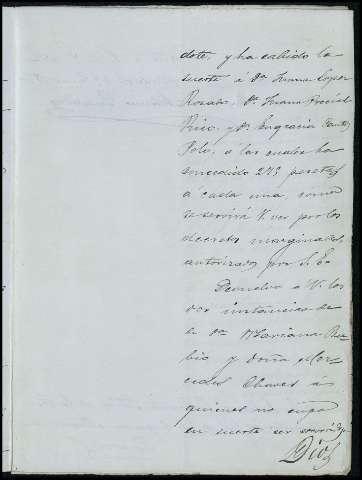 dote, y ha cabido la
suerte á Dª Juana Lopez
Rosado, Dª Juana
Rico, y Dª Engracia
Polo, a las cuales ha
concedido 275 pesetas
á cada una, como
se servirá V. ver por los
decretos marginales,
autorizados por S. E.
Devuelvo á V. las
dos instancias de
Dª Mariana Ru-
bio y doña Mer-
cedes Chaves á
quienes no cupo
en suerte ser
Dios